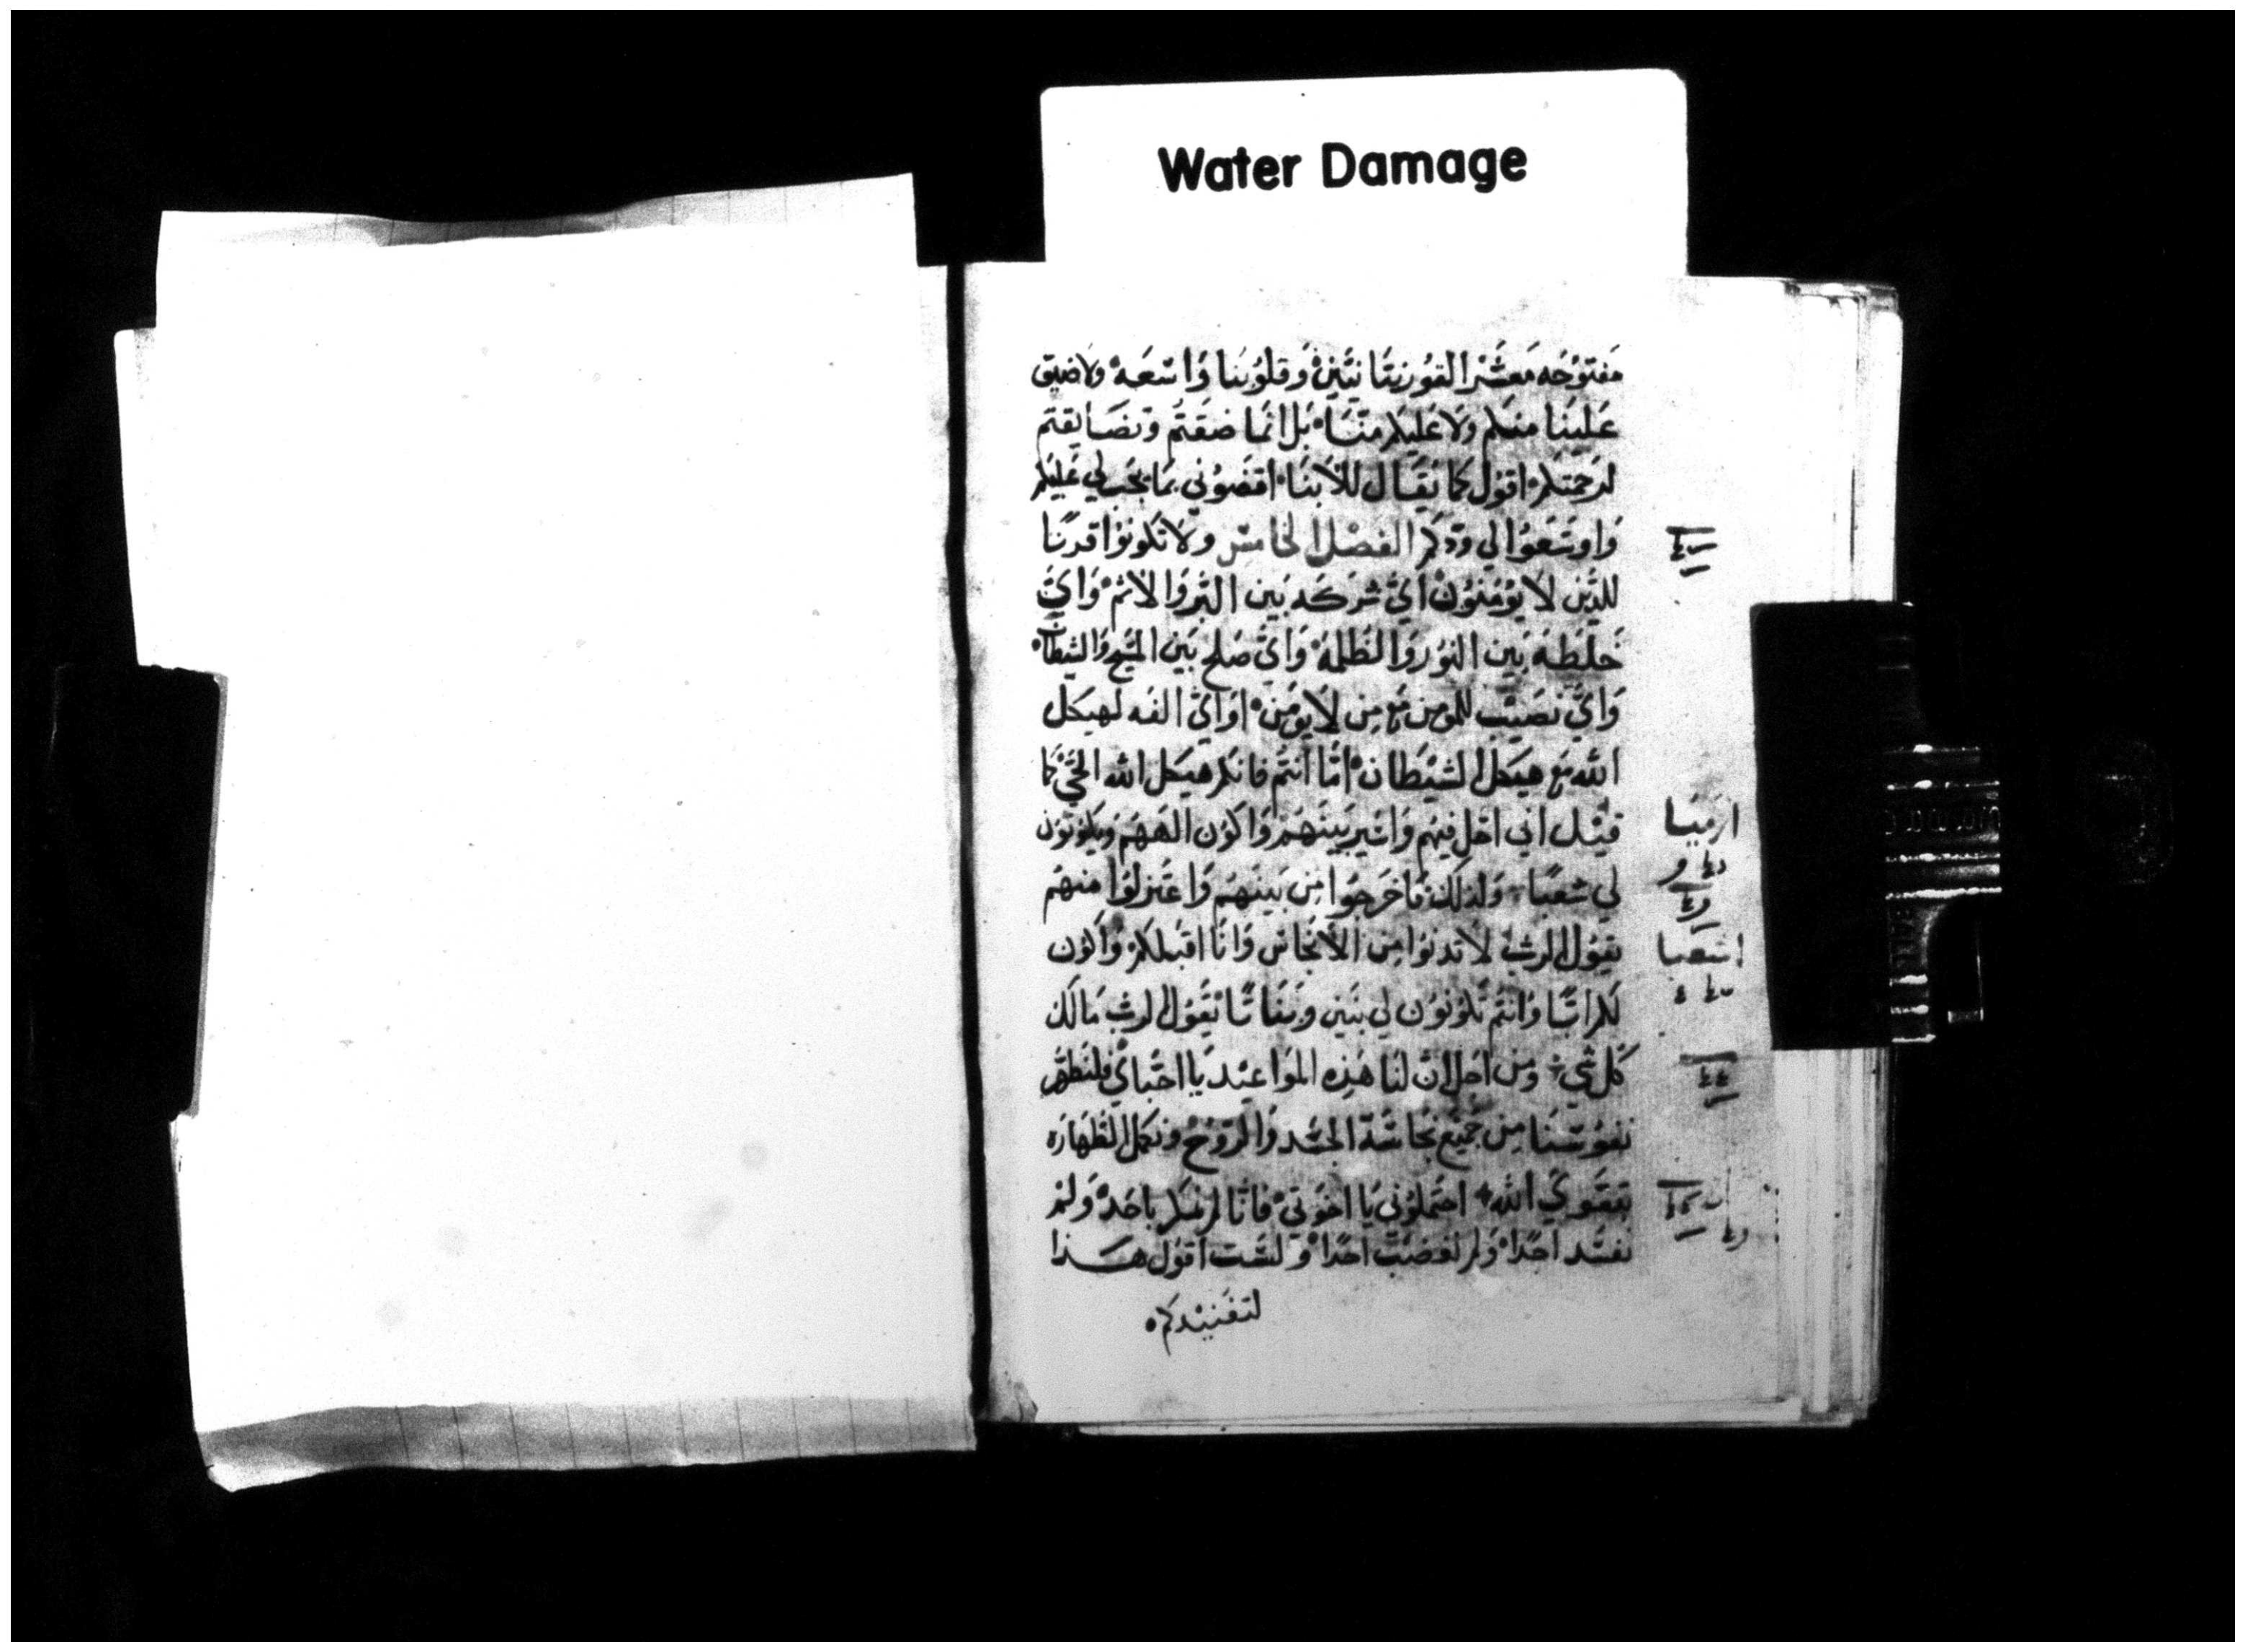 Water Damage
مَفتوُحَه مَعشَر القوُرنتَانيَّين وَقلوُبنا وَاسَعَه ولا ضيق
عَلينَا منكم ولا عَليكم منَّا بَل انما ضقتم وتضَايقتم
لرحمتكم اقوُل كما يقَال للابنَا اقضوُني بمَا يجَب لي عَليكم
وَاوسَعوُا لي ودكم الفصْل الخامسْ ولا تكونوُا قرنًا
للذَين لا يوُمنوُن ايَّ شركه بَين البّر وَالاثم وَايَّ
خلطَه بَين النوُر وَالظلمه وَايَّ صَلح بَين المسَّيح وَالشيطان
وَايَّ نصَيْب للمومن مَع مِن لا يومَن اوَايَّ الفه لهيكل
الله مَع هيكل الشيْطان امَّا انتم فانكم هيكل الله الحَيّ كما
قيْل اني احَل فيهم وَاسَير بَينهَم وَاكوُن الههَم وَيكونوُن
لي شعبًا وَلذلك فاخرجوُا مِن بَينهَم وَاعَتزلوُا منهَم
يقوُل الرب لا تدنوُا مِن الانجَاس وَانا اقبَلكم وَاكون
لكم ابًا وَانتم تكوُنوُن لي بنَين وَبنَاتًا يقَوُل الرب مَالك
كل شي وَمن اجَل ان لنا هَذه الموَاعيْد يَا احَباي فلنطَهّر
نفوُسَنا مِن جميْع نجَاسَة الجسَد وَالروُح ونكمل الطَهارَه
بتقوَي الله احتَملوُني يَا اخوَتي فانا لم نظلم باحَد وَلم
نفسَد احَدًا وَلم نغضب احَدًا وَلسَت اقوُل هَذا
لتفنيْدكم
ارميَا
اشعيا